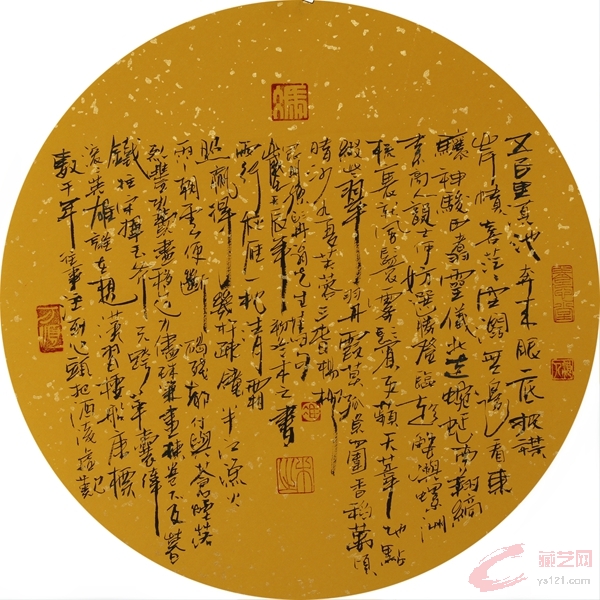 五百里滇池奔来眼底披襟
岸幘喜茫茫空闊無邊看東
驤神駿西翥靈儀北走蜿蜒南翔縞
素高人韻士何妨選勝登臨趁蟹嶼螺洲
梳裹就風鬟霧鬢更蘋天葦地點
綴些翠羽丹霞莫孤負四圍香稻萬頃
晴沙九夏芙蓉三春楊柳
數千年往事注到心頭把酒凌虛歎
滾滾英雄誰在想漢習樓船唐標
鐵柱宋揮玉斧元跨革囊偉
烈豐功費盡移山心力盡珠簾畫棟卷不及暮
雨朝雲便斷碣殘碑都付與蒼煙落
照只贏得幾杵疏鐘半江漁火
兩行秋雁一枕清霜
孫髯翁先生
壬辰年 書
藏艺网
ys121.com